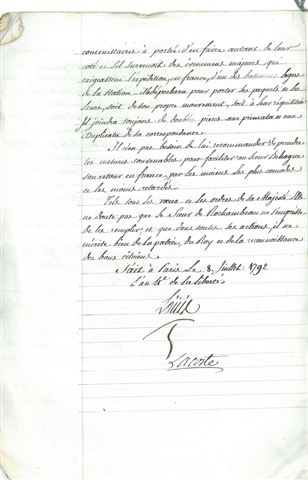 commissaires à portée d'en faire autant de leur
coté et s'il survenoit des événemens majeurs qui
exigeassent l'expédition, en france, d'un des batimens légers
de la station, il le dépechera pour porter ses paquets et les
leurs, soit de son propre mouvement, soit à leur réquisition
Il joindra toujours de doubles pieces aux primata et aux
Duplicata de sa correspondance.
Il n'est pas besoin de lui recommander de prendre
les mesures convenables pour faciliter au Sieur Behague
son retour en france, par les moiens les plus comodes
et les moins retardés.
Tels sont les voeux et les ordres de Sa Majesté. Elle
ne doute pas que le Sieur de Rochambeau ne s'empresse
de les remplir, et que dans toutes ses actions, il ne
mérite bien de la patrie, du Roy et de la reconnoissance
des bons citoiens.
Fait à Paris le 8 Juillet 1792
L'an 4e de la Liberté
Louis
Lacoste